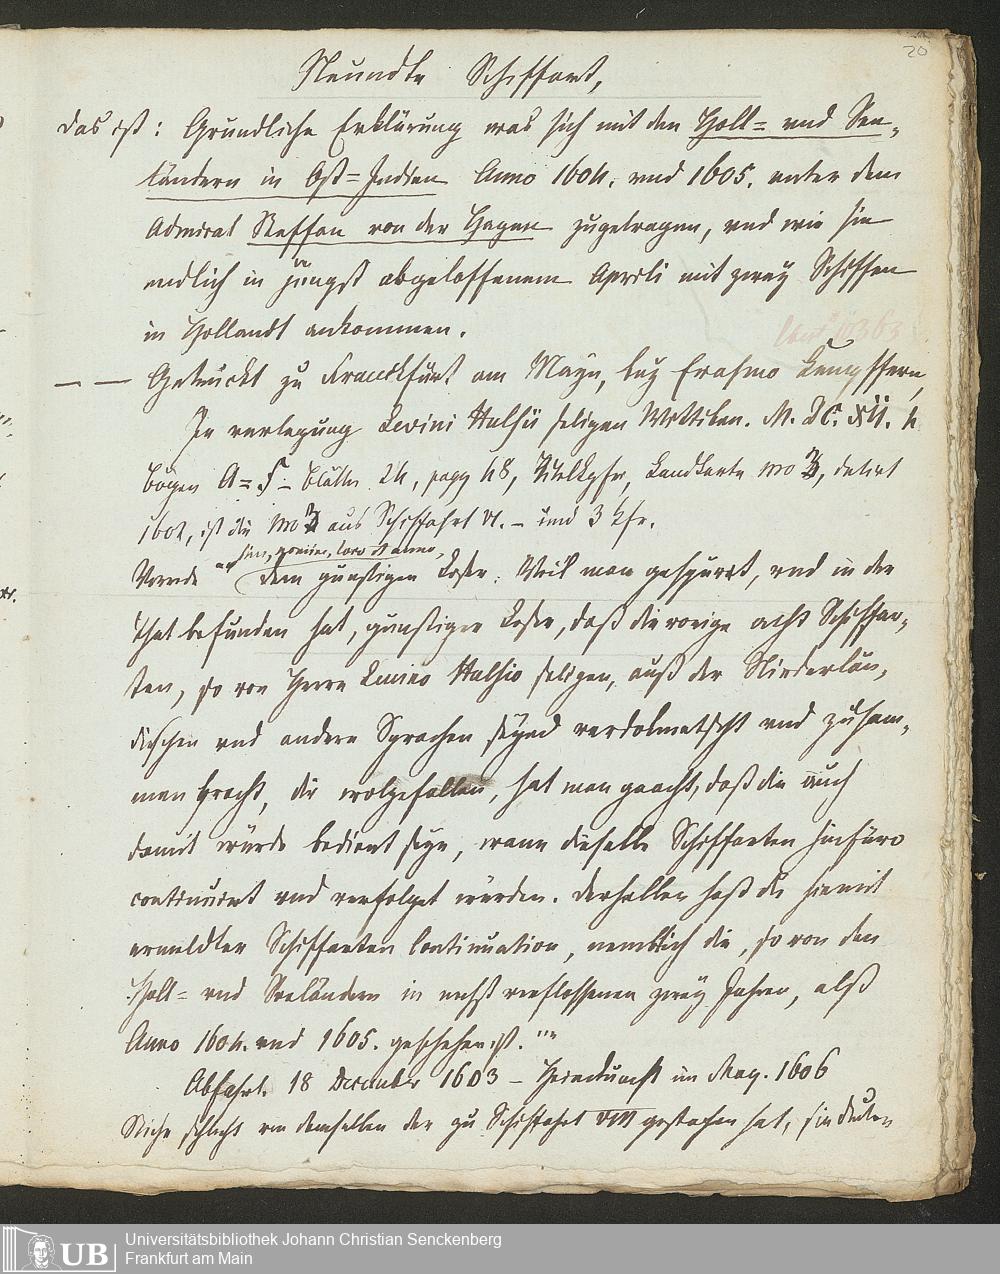 20
Neundte Schiffart,
das ist: Gründliche Erklärung was sich mit den Holl= und See-
ländern in Ost=Indien Anno 1604. und 1605. unter dem
Admiral Steffan von der Hagen zugetragen, und wie sie
endlich in jüngst abgeloffenem Aprili mit zwey Schiffen
in Hollandt ankommen.
— — Getruckt zu Franckfurt am Mayn, bey Erasmo Kempffern,
In verlegung Levini Hulsii seligen Wittiben. M. DC. XII. 4
bögen A= f= blätter 24, pagg 48, Titelkpfr, Landkarte No 3, datirt
1602, ist die No 3 aus Schiffahrt VI. – und 3 Kfr.
sine nomine, loco et anno,
Vorrede "dem günstigen Leser. Weil man gespüret, und in der
That befunden hat, günstiger Leser, daß die vorige acht Schiffar-
ten, so von Herrn Levino Hulsio seligen, auß der Niederlän-
dischen und andern Sprachen seynd verdolmetscht und zusam-
men bracht, dir wolgefallen, hat man geacht, daß dir auch
damit würde bedient seyn, wann dieselbe Schiffarten hinfüro
continuirt und verfolget würden. Derhalben hast du hiemit
ermeldter Schiffarten Continuation, nemblich die, so von den
Holl= und Seeländern in nechst verflossenen zwey Jahren, alß
Anno 1604. und 1605. geschehen ist."
Abfahrt. 18 December 1603 – Heimkunft im May. 1606
Stiche, schlecht von demselben der zu Schiffahrt VIII gestochen hat, sie
Universitätsbibliothek Johann Christian Senckenberg
UB
Frankfurt am Main